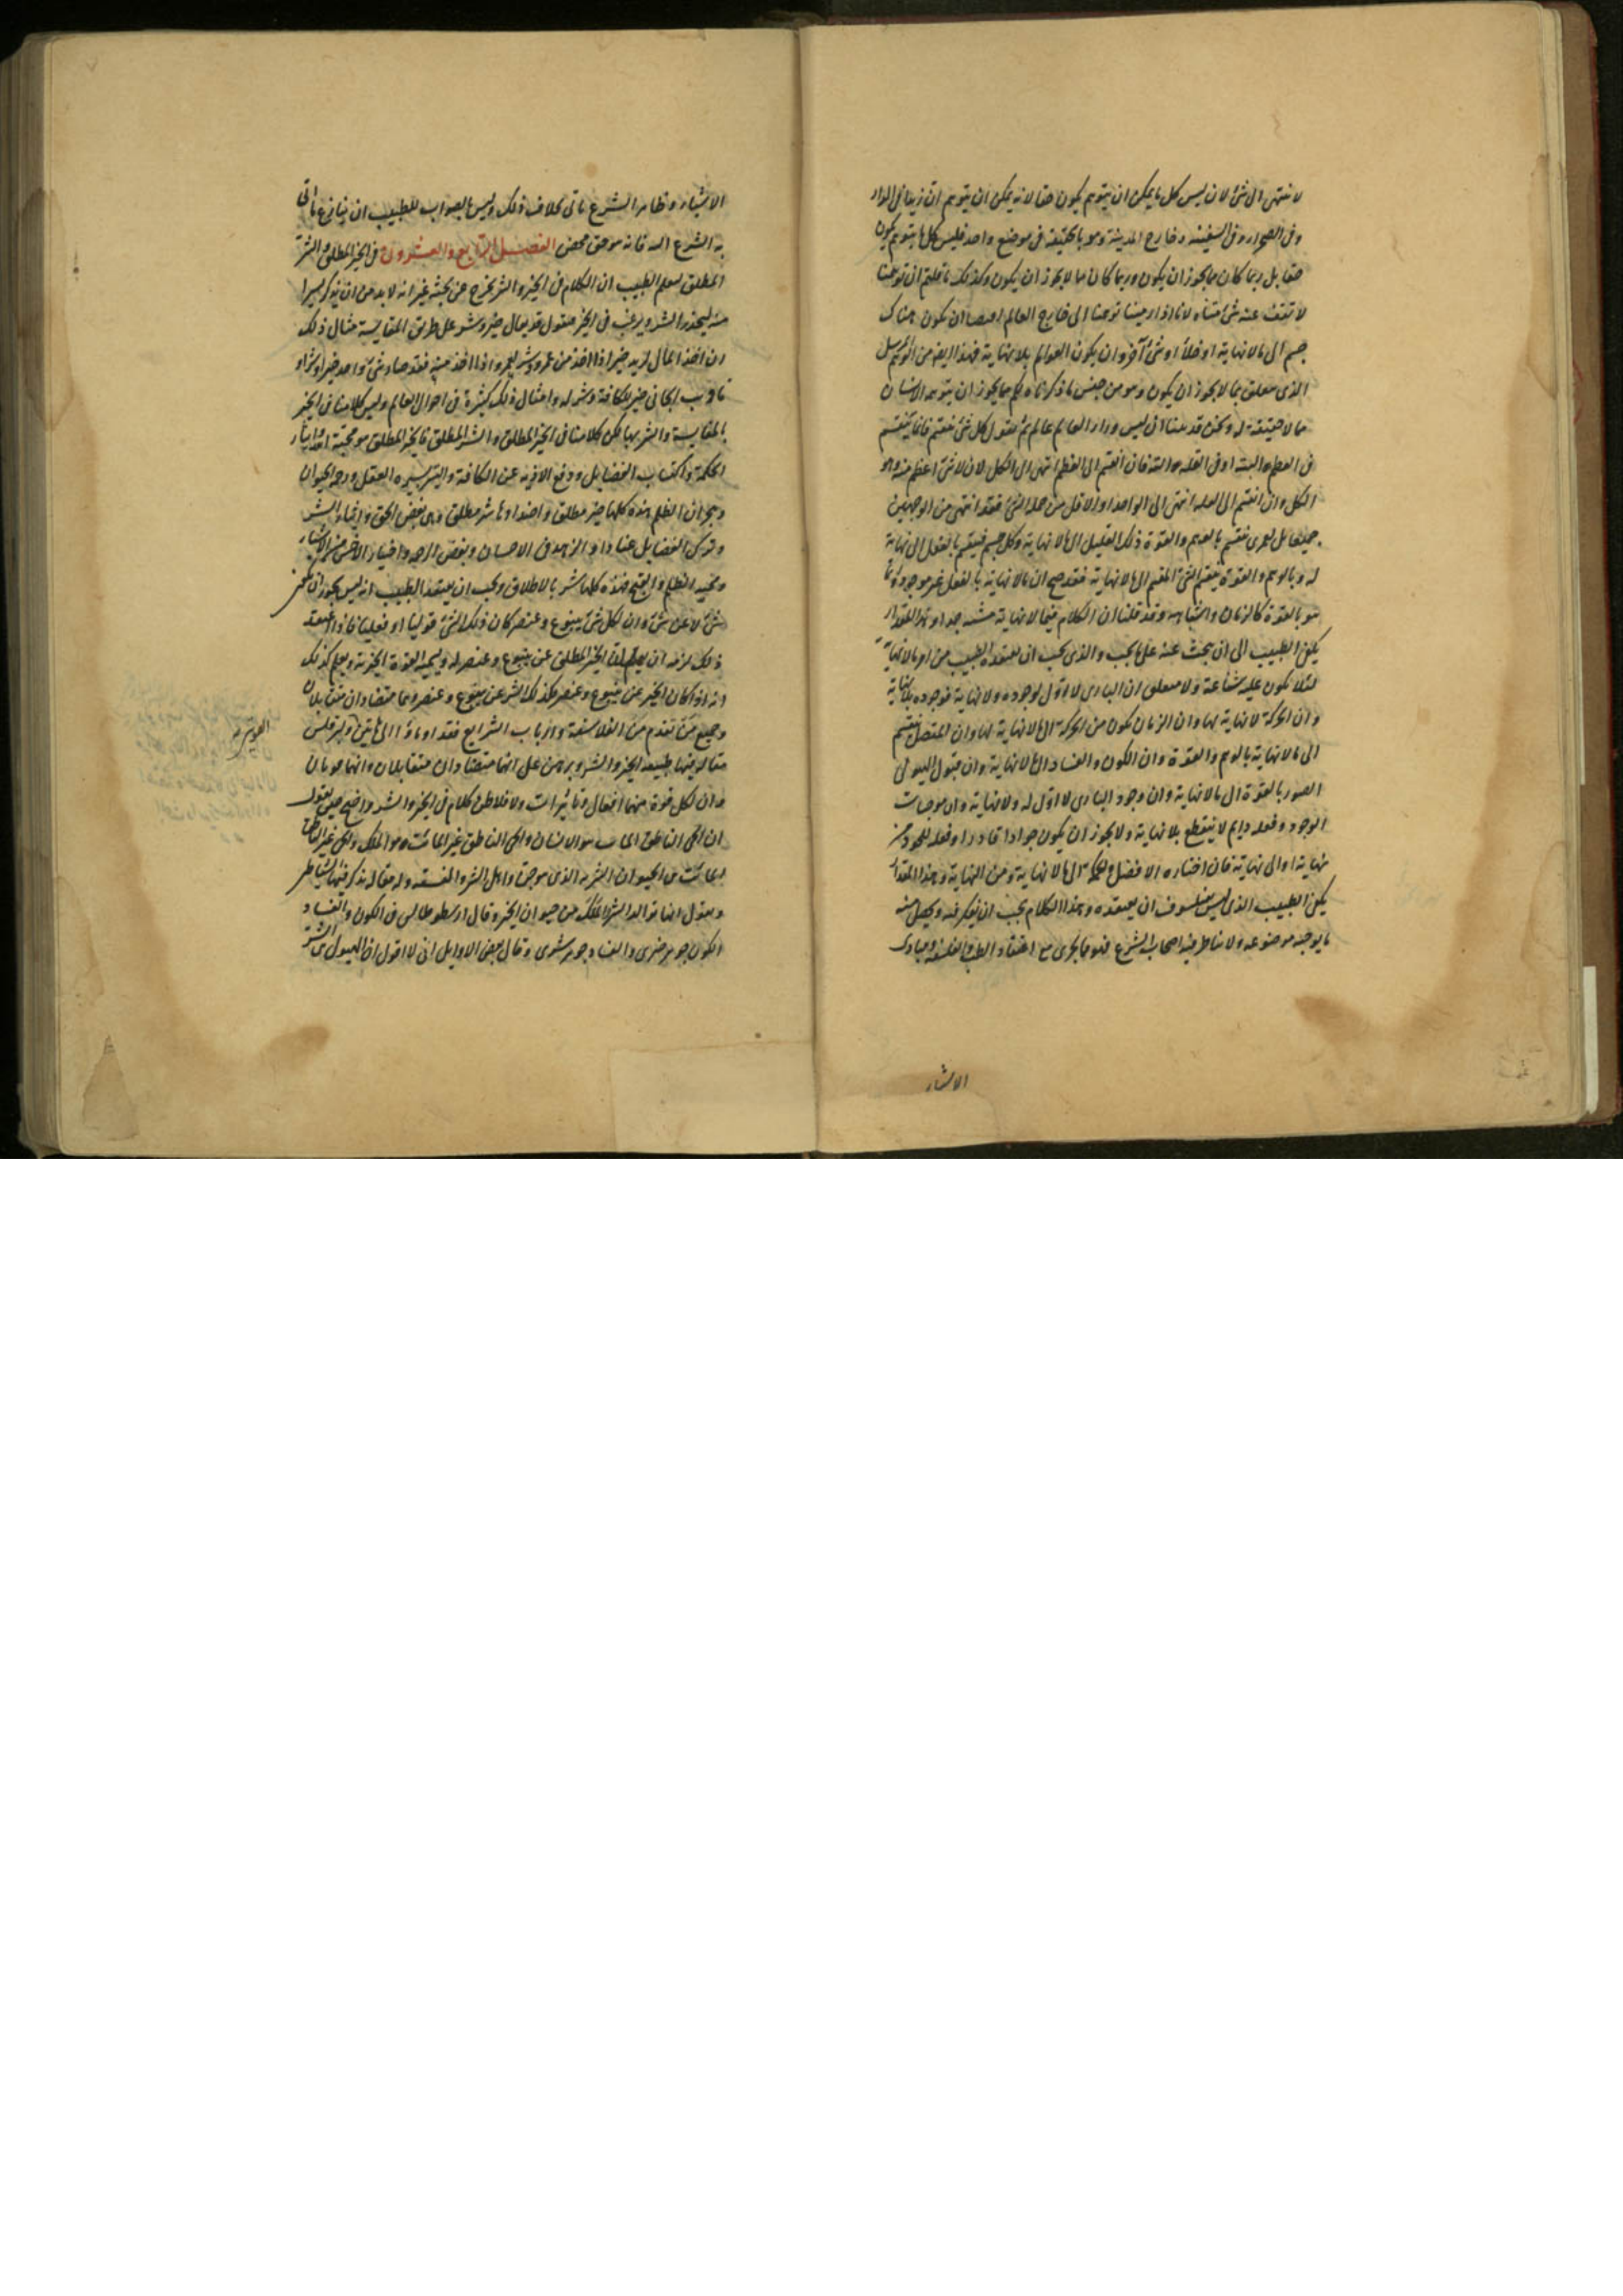 لا ينتهى الى شئ لان ليس كل ما يمكن ان يتوهم يكون حقا لانه يمكن ان يتوهم ان زيدا فى الدار
وفى الصحراء وفى السفينة وخارج المدينة وهو بالحقيقة فى موضع واحد فليس كل ما يتوهم يكون
حقا بل ربما كان مما يجوز ان يكون وربما كان مما لا يجوز ان يكون وكذلك ما قلتم ان توهمنا
لا تقف عند شئ متناه لانا اذا رمينا توهمنا الى خارج العالم ان يكون هناك
جسم الى ما لا نهاية او خلأ او شئ آخر وان يكون العوالم بلا نهاية فهذا ايضا من التوهم
الذى متعلق بما لا يجوز ان يكون وهو من جنس ما ذكرناه لكم مما يجوز ان يتوهمه الانسان
مما لا حقيقة له ونحن قد بينا ان ليس وراء العالم عالم ثم نقول كل شئ ينقسم فانما ينقسم
فى العظم البتة او فى القلة البتة فان انقسم الى العظم انتهى الى الكل لان لا شئ اعظم منه وهو
الكل وان انقسم الى القلة انتهى الى الواحد او الاقل من جملة الشئ فقد انتهى من الوجهين
جميعا بل لعمرى ينقسم بالوهم والقوة ذلك القليل الى ما لا نهاية وكل جسم فينقسم بالفعل الى نهاية
له وبالوهم والقوة ينقسم الشئ المقسم الى ما لا نهاية فقد صح ان ما لا نهاية بالفعل غير موجود وانما
هو بالقوة كالزمان واشباهه وقد قلنا ان الكلام فيما لا نهاية متسع جدا وهذا المقدار
يكفى الطبيب الى ان يبحث عنه على ما يجب والذى يجب ان يعتقده الطبيب من امر ما لا نهاية
لئلا يكون عليه شناعة ولا متعلق ان البارى لا اول لوجوده ولا نهاية فوجوده بلا نهاية
وان الحركة لا نهاية لها وان الزمان يكون من الحركة الى ما لا نهاية لها وان المتصل ينقسم
الى ما لا نهاية بالوهم والقوة وان الكون والفساد الى ما لا نهاية وان قبول الهيولى
الصور بالقوة الى ما لا نهاية وان وجود البارى لا اول له ولا نهاية وان موجبات
الوجود وفعله دايم لا ينقطع بلا نهاية ولا يجوز ان يكون جوادا قادرا وفعله للجود من
نهاية او الى نهاية فان اختياره الافضل والحكمة الى ما لا نهاية ومن النهاية وهذا المقدار
يكفى الطبيب الذى ليس بفيلسوف ان يعتقده وبهذا الكلام يجب ان يفكر فيه ويحصل منه
ما يوجبه موضوعه ولا يناظر فيه اصحاب الشرع فهو مما يجرى مع اعتقاد الطب والفلسفة ومبادى
الاشياء
الاشياء وظاهر الشرع ياتى بخلاف ذلك وليس بالصواب للطبيب ان ينازع ما اتى
به الشرع البتة فانه هو حق محض الفصل الرابع والعشرون فى الخير المطلق والشر
المطلق ليعلم الطبيب ان الكلام فى الخير والشر يخرج عن بحثه غير انه لا بد من ان يذكر يسيرا
منه ليحذر الشر ويرغب فى الخير فنقول قد يقال خير وشر على طريق المقايسة مثال ذلك
ان اخذ المال لزيد خير اذا اخذ من عمرو وشر لعمرو اذا اخذ منه فقد صار شئ واحد خيرا وشرا و
تاديب الجانى خير للكافة وشر له وامثال ذلك كثيرة فى احوال العالم وليس كلامنا فى الخير
بالمقايسة والشر بها لكن كلامنا فى الخير المطلق والشر المطلق فالخير المطلق هو محبة الله وايثار
الحكمة واكتساب الفضايل ودفع الاذية عن الكافة والتسيير بسيرة العقل ورحمة الحيوان
وهجران الظلم هذه كلها خير مطلق واضدادها شر مطلق وهى بغض الحق وايثار الشر
وترك الفضايل عنادا والزهد فى الاحسان وبغض الرحمة واختيار الاخس من الاشياء
ومحبة الظلم والقبيح فهذه كلها شر بالاطلاق ويجب ان يعتقد الطبيب انه ليس يجوز ان يكون
شئ لا عن شئ وان لكل شئ ينبوع وعنصر كان ذلك الشئ قوليا او فعليا فاذا اعتقد
ذلك لزمه ان يعلم ان الخير المطلق عن ينبوع وعنصر له ويسميه القوة الخيرية ويعلم كذلك
انه اذا كان الخير عن ينبوع وعنصر فكذلك الشر عن ينبوع وعنصر وهما متضادان متقابلان
وجميع من تقدم من الفلاسفة وارباب الشرايع فقد اوماؤا الى هاتين ولبرقلس
مقالة بين فيها طبيعة الخير والشر وبرهن على انهما متضادان متقابلان وانهما
وان لكل قوة منهما افعال وتاثيرات ولافلاطن كلام فى الخير والشر واضح حين يقول
ان الحى الناطق المايت هو الانسان والحى الناطق غير المائت هو الملك والحى غير الناطق
المائت من الحيوان الشرير الذى هو جن واهل الشر والمفسدة وله مقالة يذكر فيها الشياطين
ويقول انها توالد الشر والملك من حيوان الخير وقال ارسطوطاليس فى الكون والفساد
الكون جوهر خيرى والفساد جوهر شرى وقال بعض الاوايل انى لا اقول ان الهيولى هى الشر